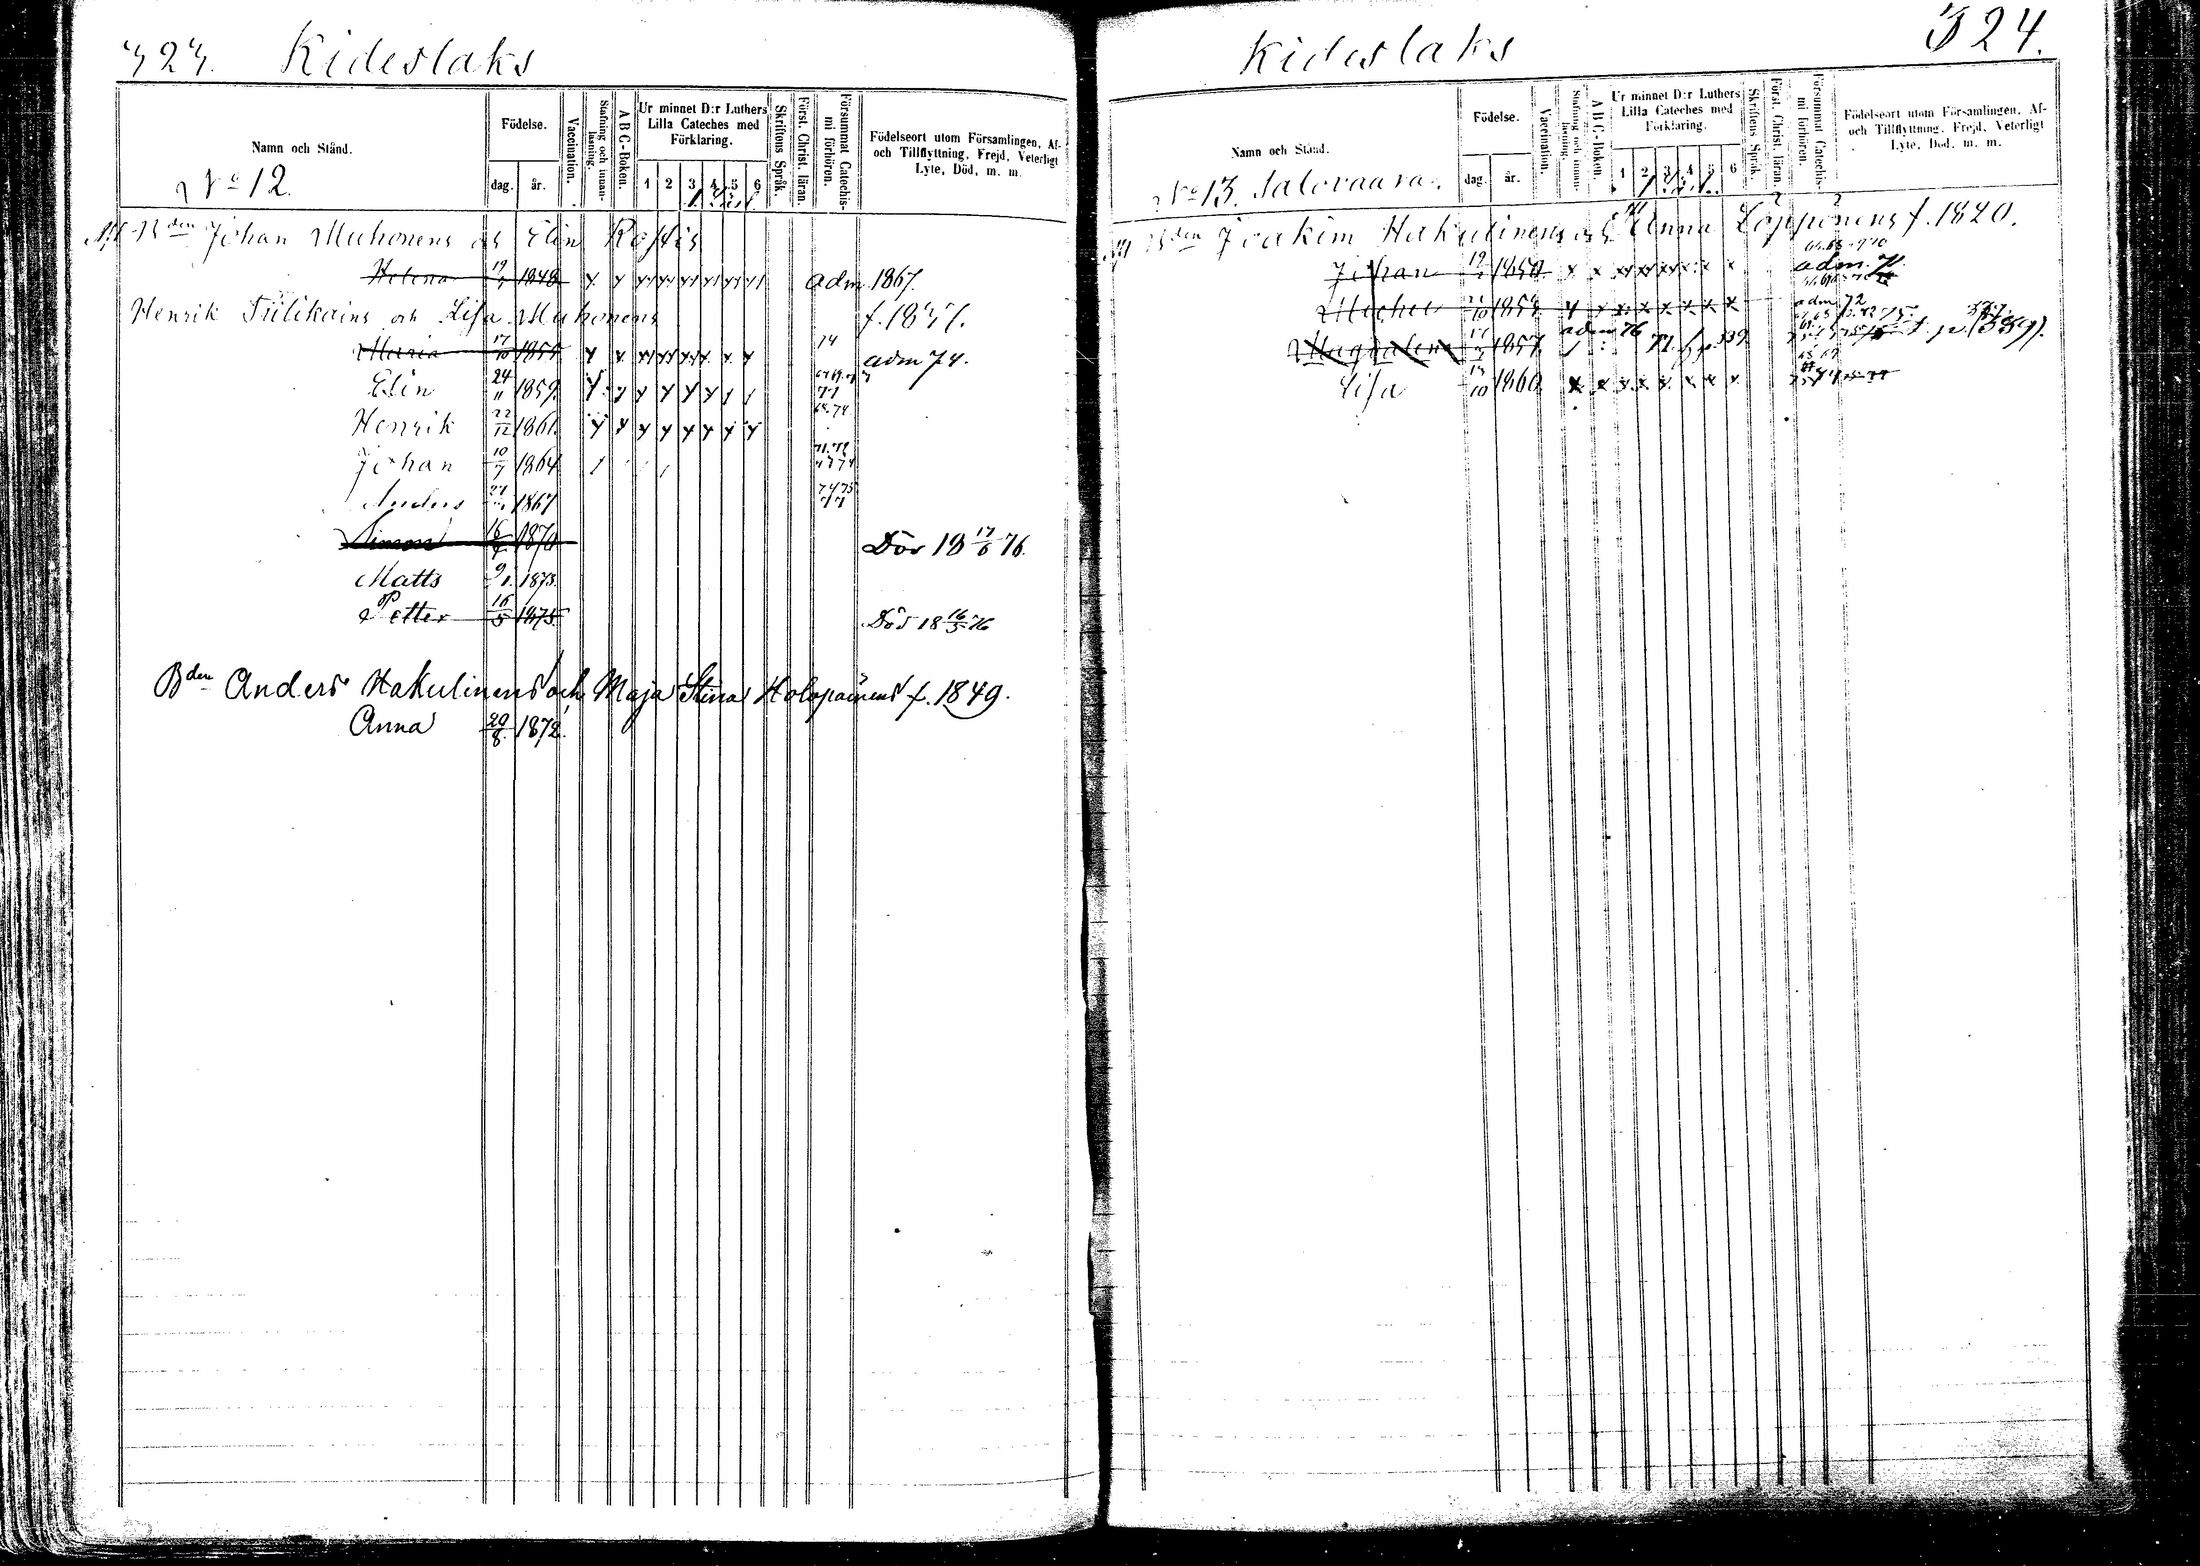 323. Kideslaks
Namn och Stånd.
Födelse.
dag. år.
Vaccination.
Stafning och innan-läsning.
A B C-Boken.
Ur minnet D:r Luthers Lilla Cateches med Förklaring.
1 2 3 4 5 6
Skriftens Språk.
Först. Christ. läran.
Försummat Catechis-mi förhören.
Födelseort utom Församlingen, Af- och Tillflyttning, Frejd, Veterligt Lyte, Död, m. m.
No 12.
Bden Johan Muhonens och Elin Rastis
Helena 1848 adm 1867.
Henrik Tiilikains och Lisa Muhonens f. 1837.
Maria 17/10 1855 14 adm 74.
Elin 24/11 1859.
Henrik 22/12 1861. 68.74
Johan 10/7 1864
Anders 1867 74 75
Simon 1870 Dör 18 17/6 76.
Matts 9/1. 1873.
Petter 16/5 1875 Död 18 16/5 76
Bden Anders Hakulinens och Maja Stina Holopainens f. 1849.
Anna 29/8. 1872.
Kideslaks 324.
Namn och Stånd.
Födelse.
dag. år.
Vaccination.
Stafning och innan-läsning.
A B C-Boken.
Ur minnet D:r Luthers Lilla Cateches med Förklaring.
1 2 3 4 5 6
Skriftens Språk.
Först. Christ. läran.
Försummat Catechis-mi förhören.
Födelseort utom Församlingen, Af- och Tillflyttning, Frejd, Veterligt Lyte, Död, m. m.
No 13. Salovaara.
Bden Joakim Hakulinens och Anna Löppönens f. 1820.
Johan 1850 adm.
Michel 1854 adm 72
Magdalena 1857. adm 76 p. 339
Lisa 1860